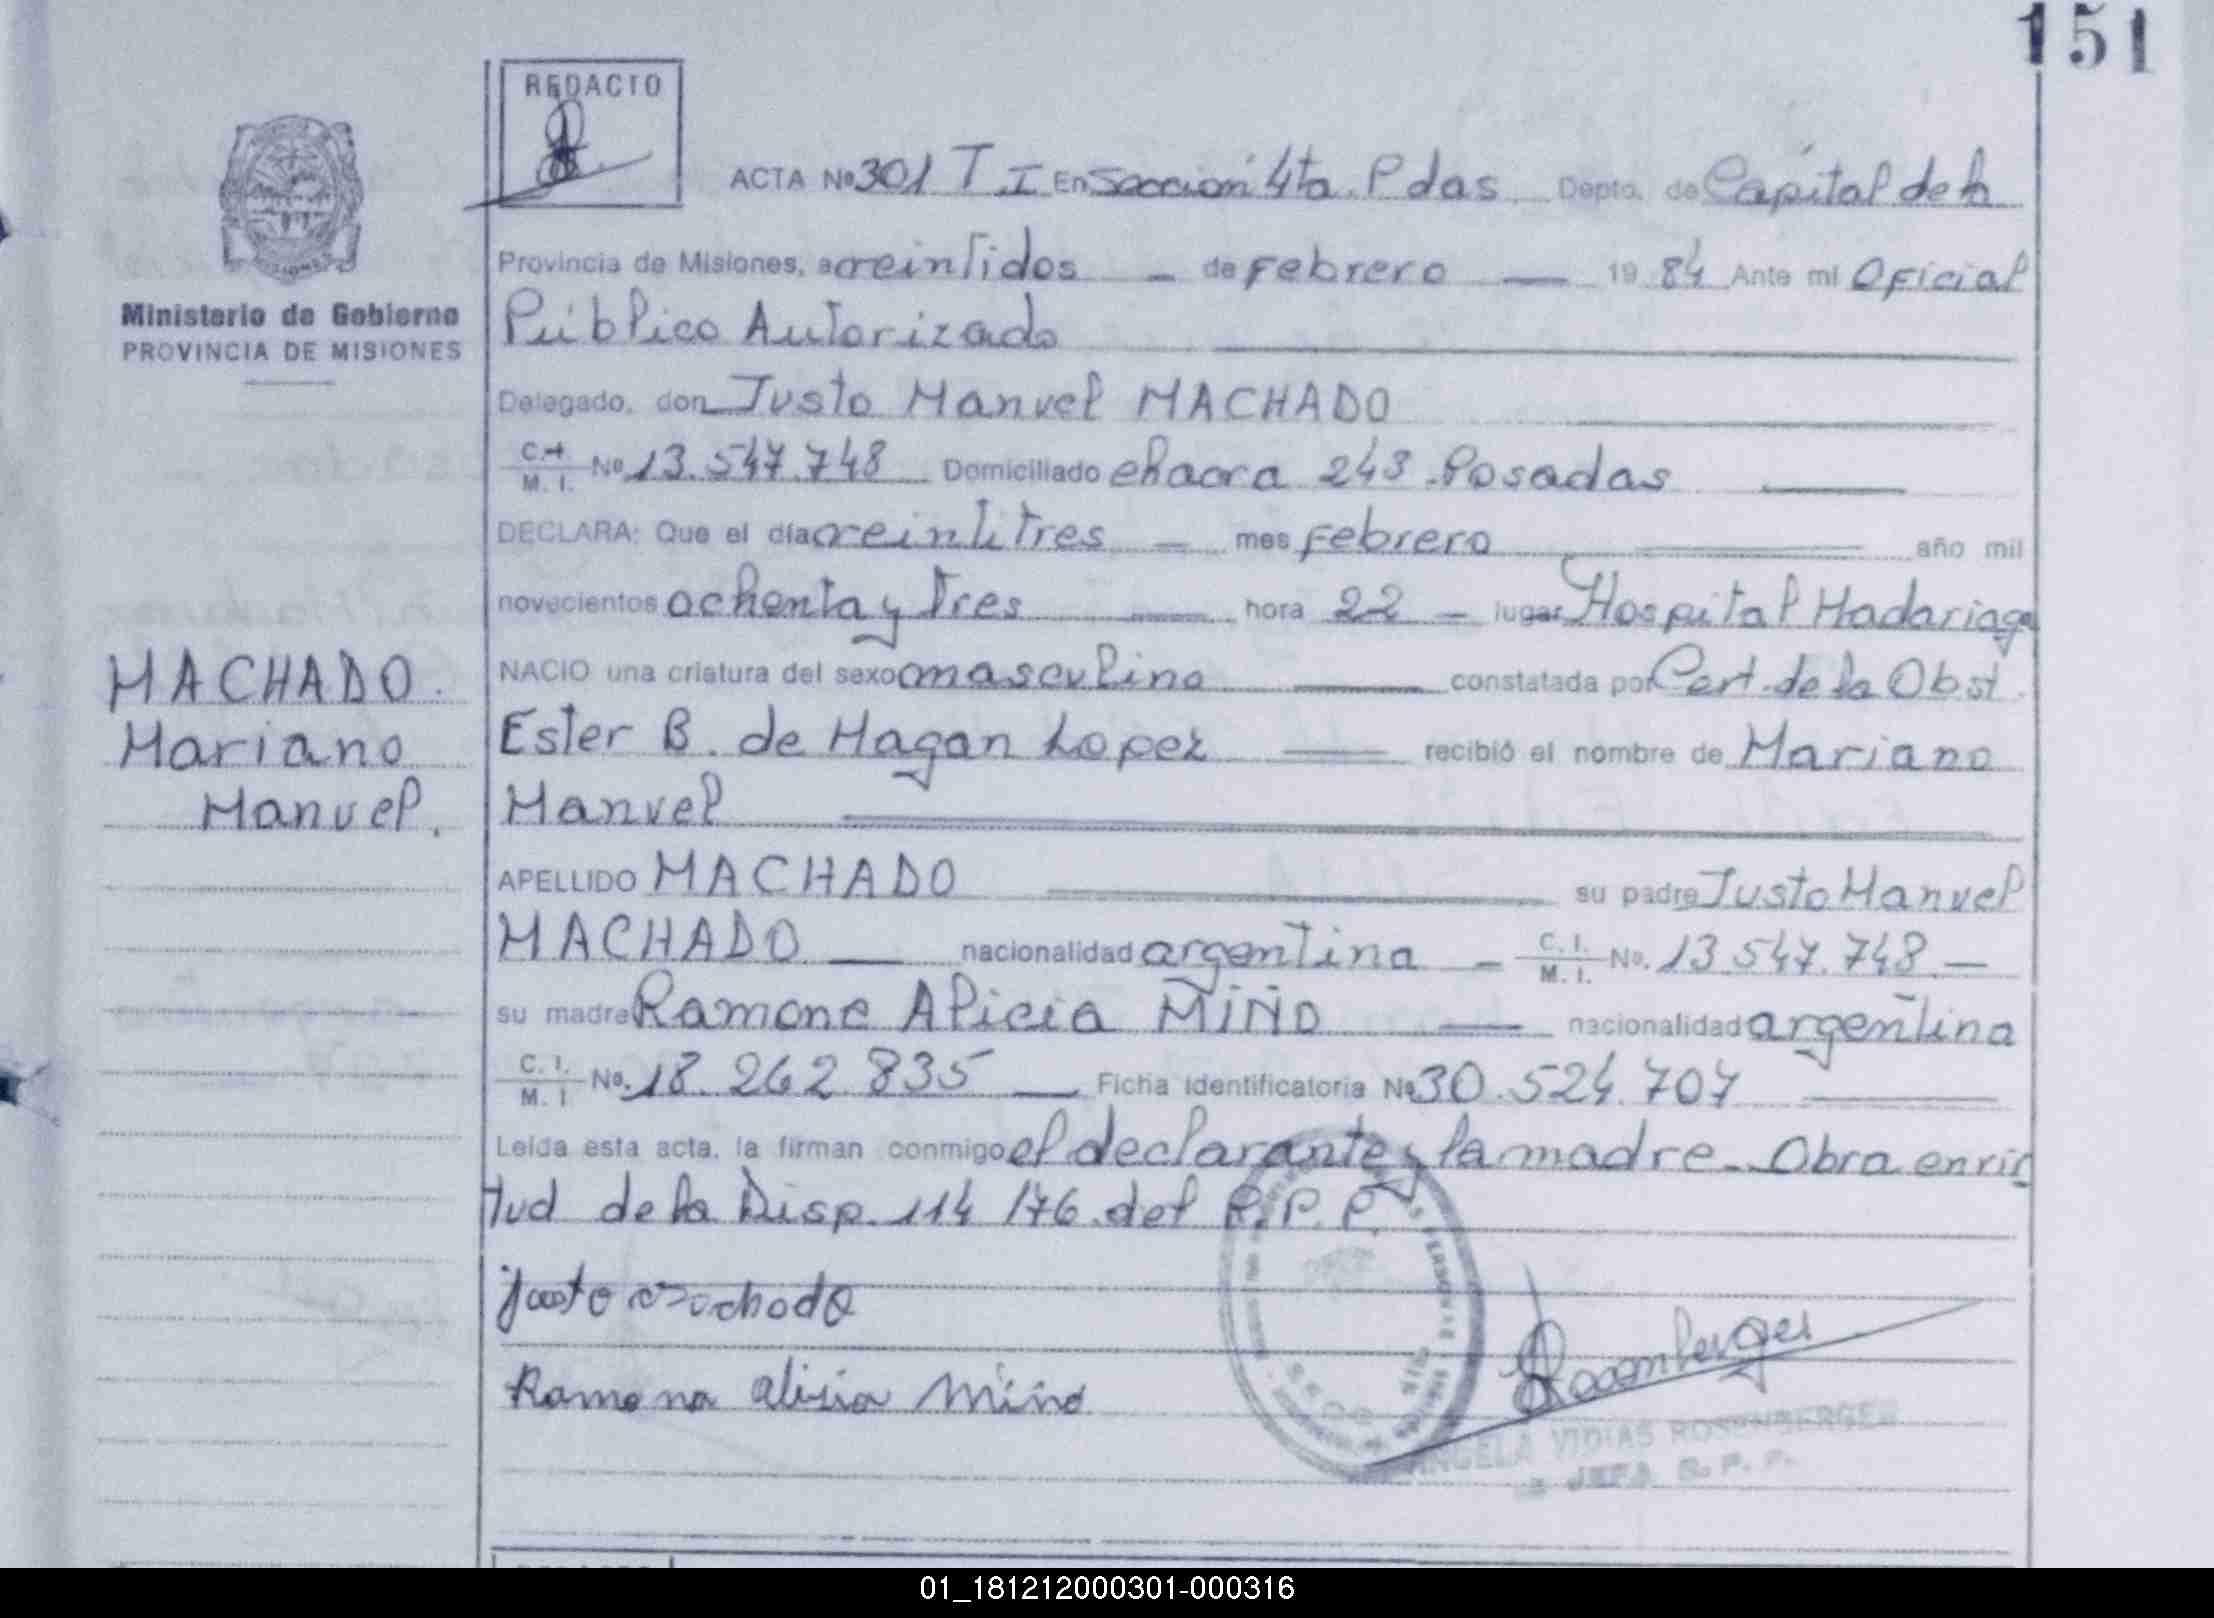 151
REDACTO
ACTA Nº 301 T. I En Sección 4ta. Pdas Depto. de Capital de la
Provincia de Misiones, a veintidos - de Febrero — 19 84 Ante mi Oficial
Ministerio de Gobierno
PROVINCIA DE MISIONES
Público Autorizado
Delegado, don Justo Manuel MACHADO
C.I. M. I. Nº 13.547.748 Domiciliado chacra 243 - Posadas —
DECLARA: Que el día veintitres — mes Febrero — año mil
novecientos ochenta y tres — hora 22 - lugar Hospital Madariaga
MACHADO.
Mariano
Manuel.
NACIO una criatura del sexo masculino — constatada por Cert. de la Obst.
Ester B. de Hagan Lopez — recibió el nombre de Mariano
Manuel
APELLIDO MACHADO — su padre Justo Manuel
MACHADO — nacionalidad argentina - C. I. M. I. No. 13.547.748 —
su madre Ramona Alicia MIÑO — nacionalidad argentina
C. I. M. I No. 18.262.835 — Ficha Identificatoria Nº 30.524.707 —
Leída esta acta, la firman conmigo el declarante y la madre - Obra en vir
tud de la Disp. 114/76 del R.P.P.
justo machado
Ramona alicia Miño
Rosemberger
ANGELA VIDIAS ROSENBERGER
JEFA R. P. P.
01_181212000301-000316